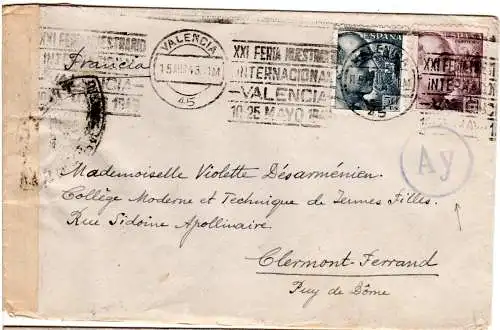 XXI FERIA MUESTRARIO
INTERNACIONAL
VALENCIA
10-25 MAYO
VALENCIA
45
XXI FERIA MUESTRARIO
INTERNACIONAL
-VALENCIA
10-25 MAYO
ESPAÑA
45
ESPAÑA
XXI FERIA
Francia
Ay
Mademoiselle Violette Désarménien.
Collège Moderne et Technique de Jeunes Filles.
Rue Sidoine Apollinaire.
Clermont-Ferrand
Puy de Dôme